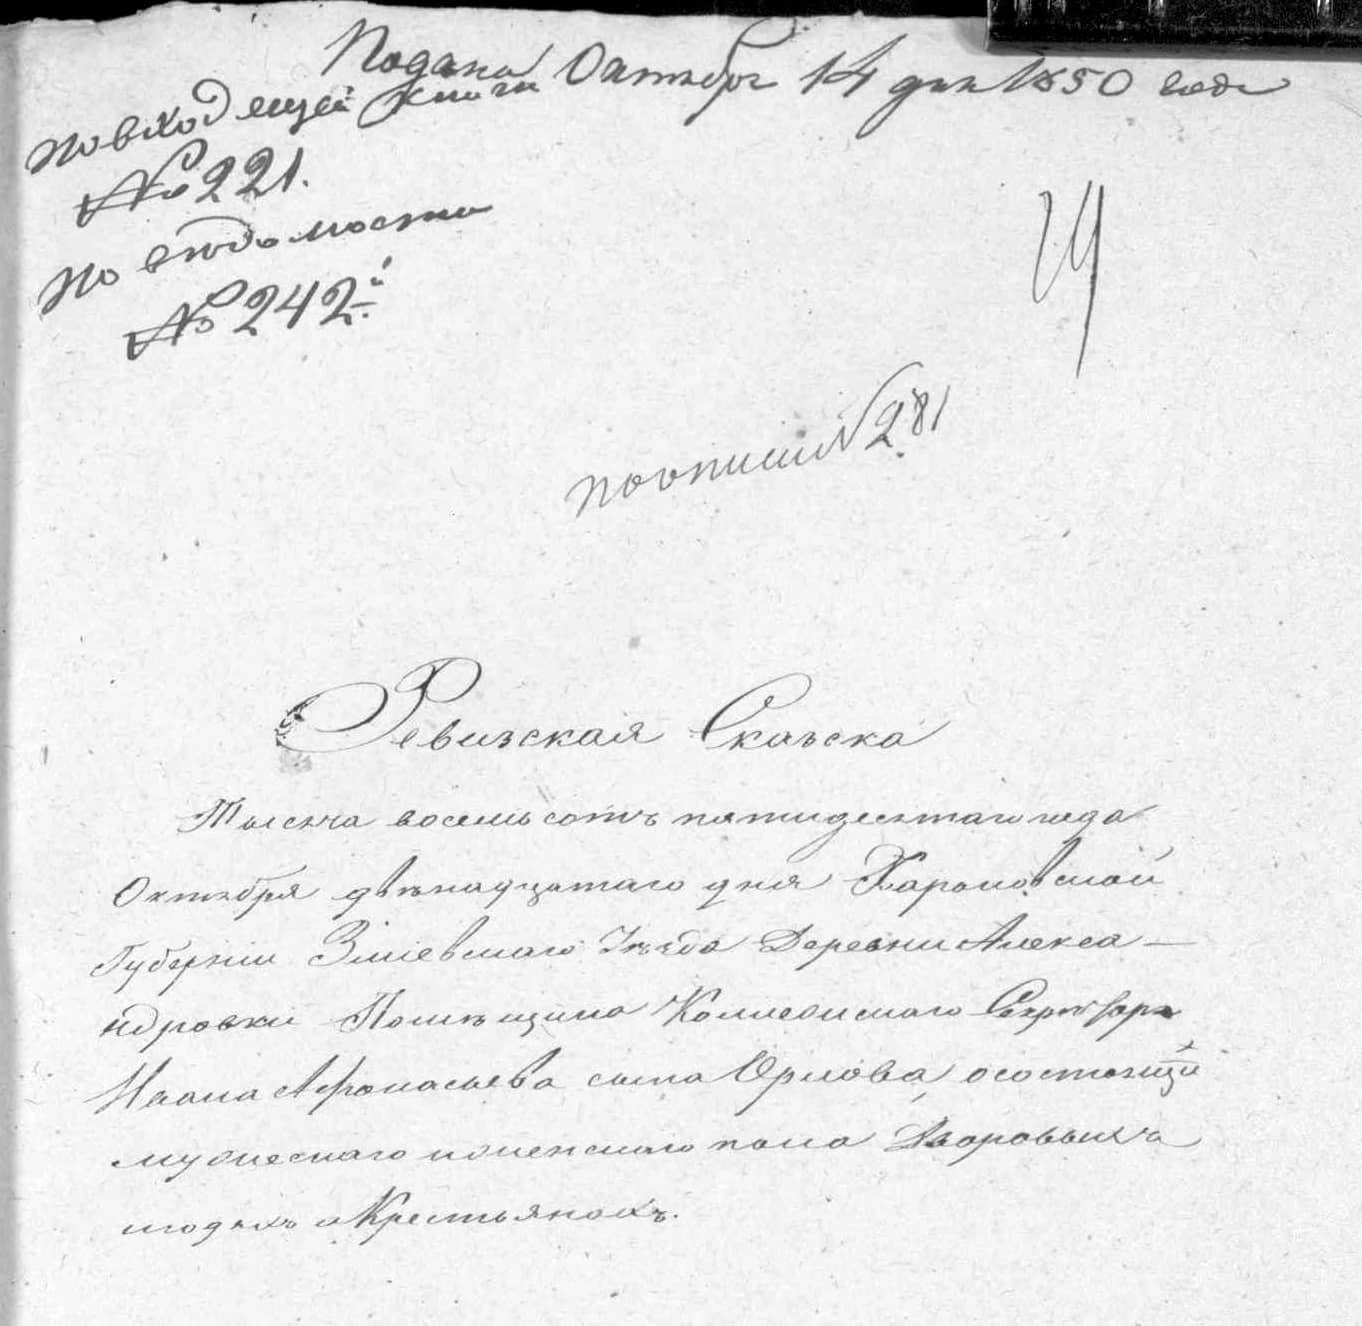 Подана Октября 14 дня 1850 года
по входящей книги
№ 221.
по ведомости
№ 242.й
по описи № 281
Ревизская Сказска
Тысеча восемьсотъ пятидесятаго года
Октября двѣнадцатаго дня Харьковской
Губерніи Зміевскаго Уѣзда Деревни Алекса-
ндровки Помѣщика Коллежскаго Секретаря
Ивана Афонасьева сына Орлова, о состоящи
мужескаго и женскаго пола Дворовыхъ
людяхъ и Крестьянахъ.